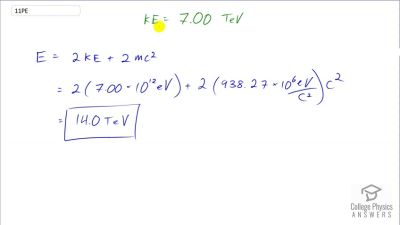 11PE
KE = 7.00 TeV
E = 2 KE + 2 mc²
= 2 ( 7.00 × 10¹² eV ) + 2 ( 938.27 × 10⁶ eV/c² ) c²
= 14.0 TeV
College Physics
ANSWERS